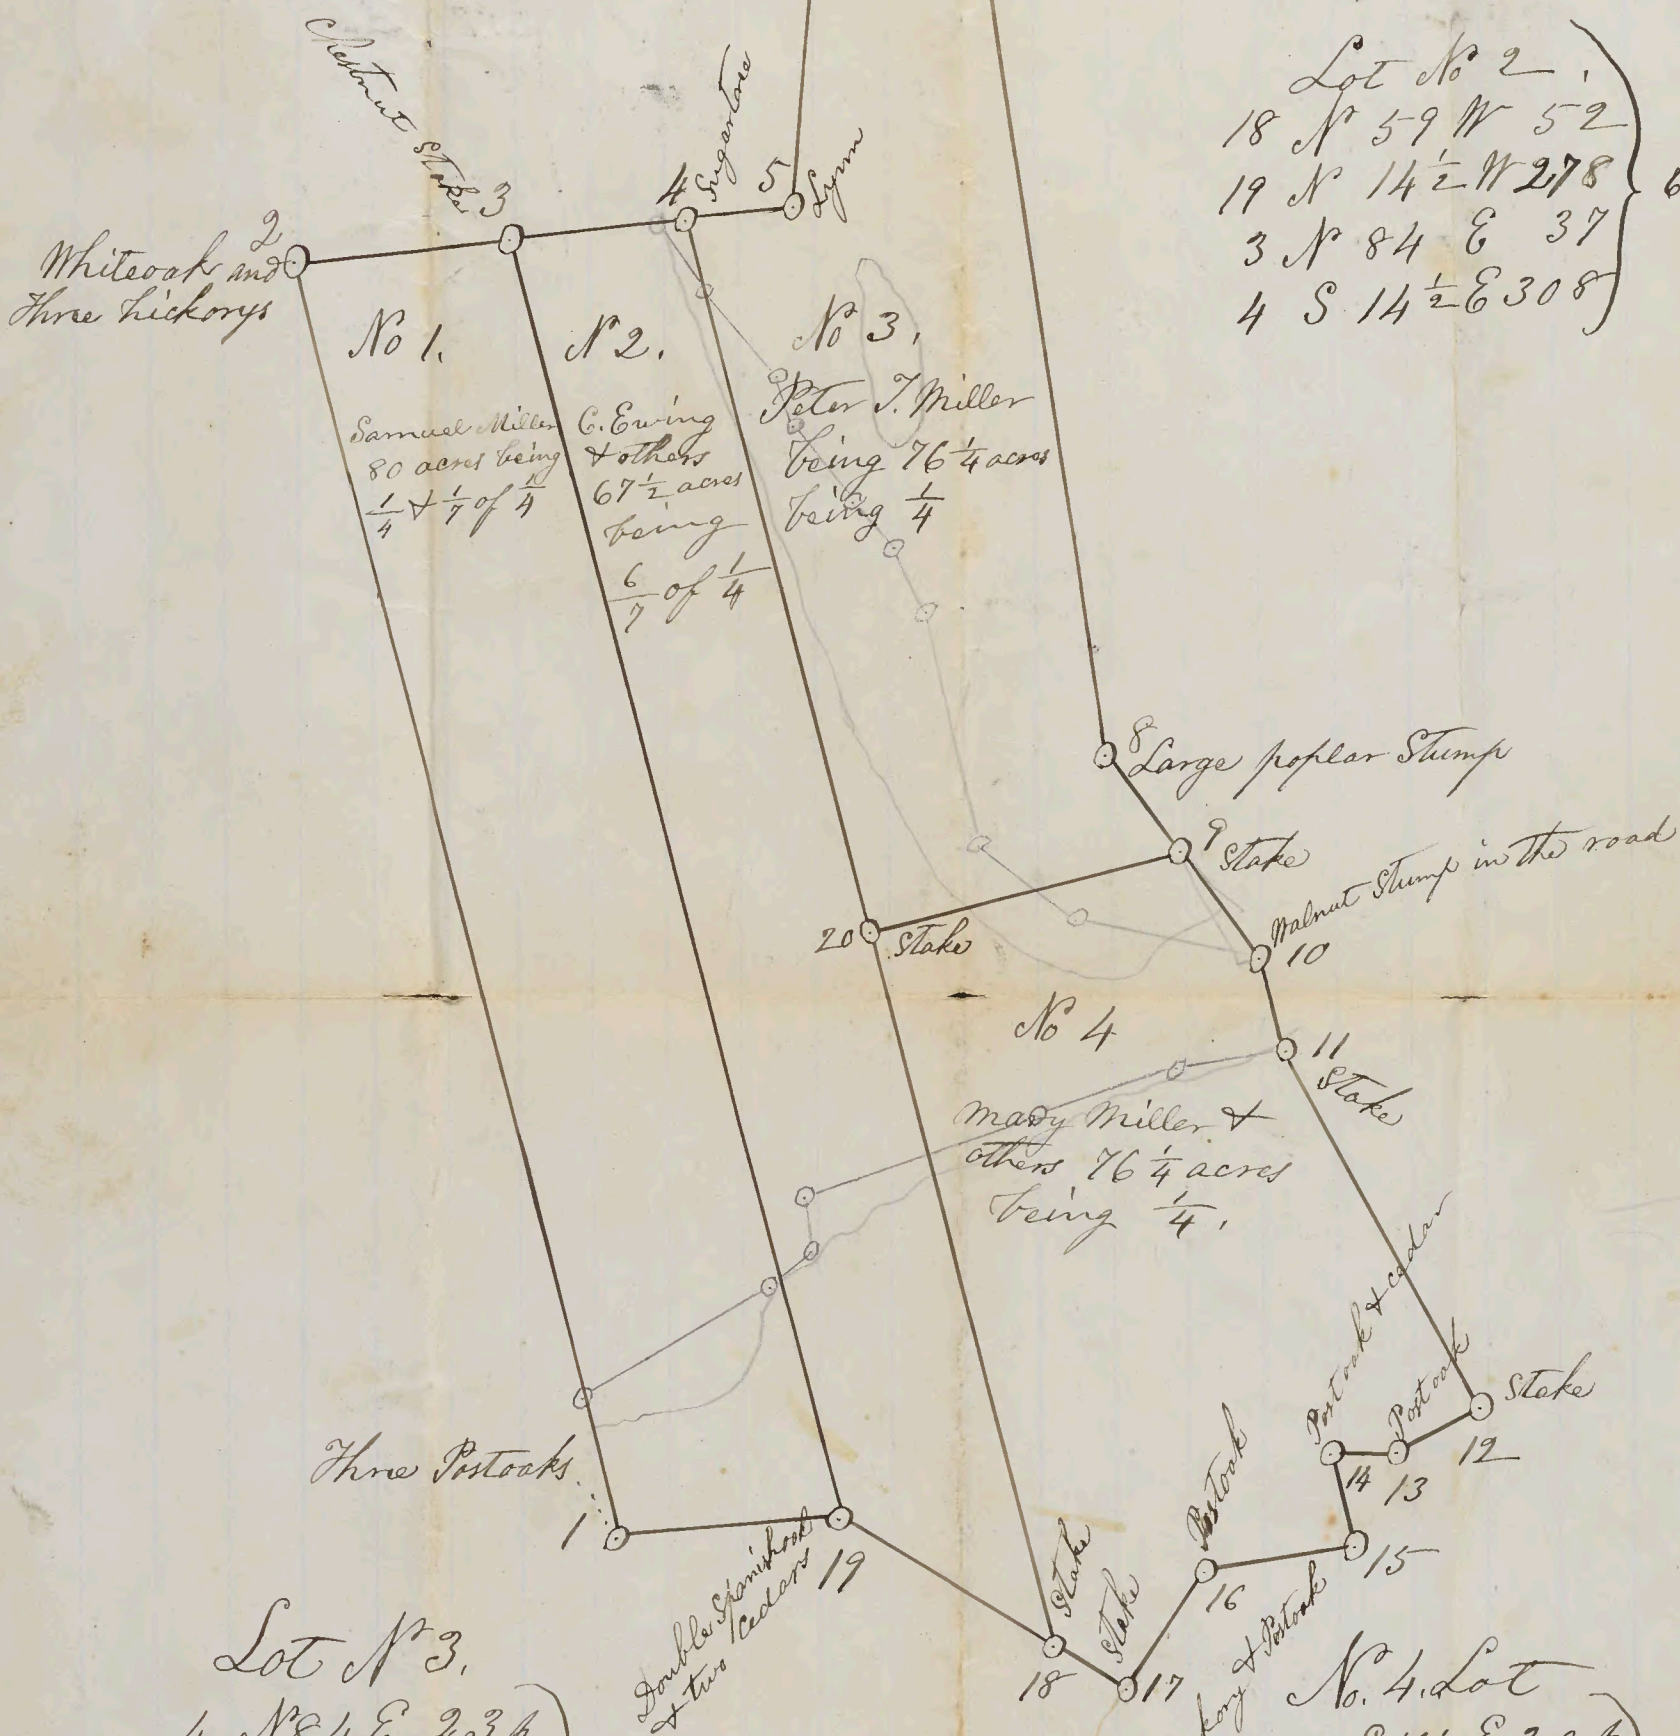 Lot No 2.
18 N 59 W 52
19 N 14 1/2 W 278
3 N 84 E 37
4 S 14 1/2 E 308
6
Chestnut Stake 3
4 Sugartree
5 Lynn
2
Whiteoak and
Three hickorys
No 1.
Samuel Miller
80 acres being
1/4 & 1/7 of 1/4
N 2.
C. Ewing
& others
67 1/2 acres
being
6/7 of 1/4
No 3.
Peter T. Miller
being 76 1/4 acres
being 1/4
8
Large poplar Stump
9
Stake
Walnut Stump in the road
10
20 Stake
No 4
11
Stake
Mary Miller &
others 76 1/4 acres
being 1/4.
Post oak & cedar
Post oak
Stake
12
13
14
15
Postoak
16
& Postoak
Three Postoaks
1
19
Double Spanishoak
& two Cedars
Stake
18
Stake
17
Lot N 3.
4 N 84 E 23
No. 4. Lot